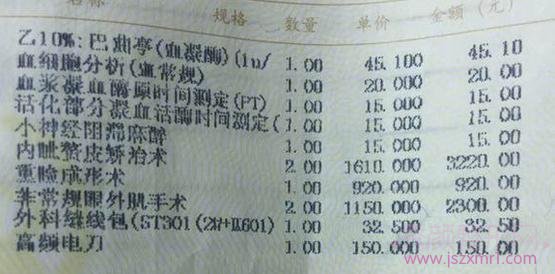 名称 规格 数量 单价 金额(元)
乙10%:巴曲亭(血凝酶)(1u/ 1.00 45.100 45.10
血细胞分析(血常规) 1.00 20.000 20.00
血浆凝血酶原时间测定(PT) 1.00 15.000 15.00
活化部分凝血活酶时间测定( 1.00 15.000 15.00
小神经阻滞麻醉 1.00 15.000 15.00
内眦赘皮矫治术 2.00 1610.000 3220.00
重睑成形术 1.00 920.000 920.00
非常规眼外肌手术 2.00 1150.000 2300.00
外科缝线包(ST301(2#+ 1.00 32.500 32.50
高频电刀 1.00 150.000 150.00
www.jszxmri.com